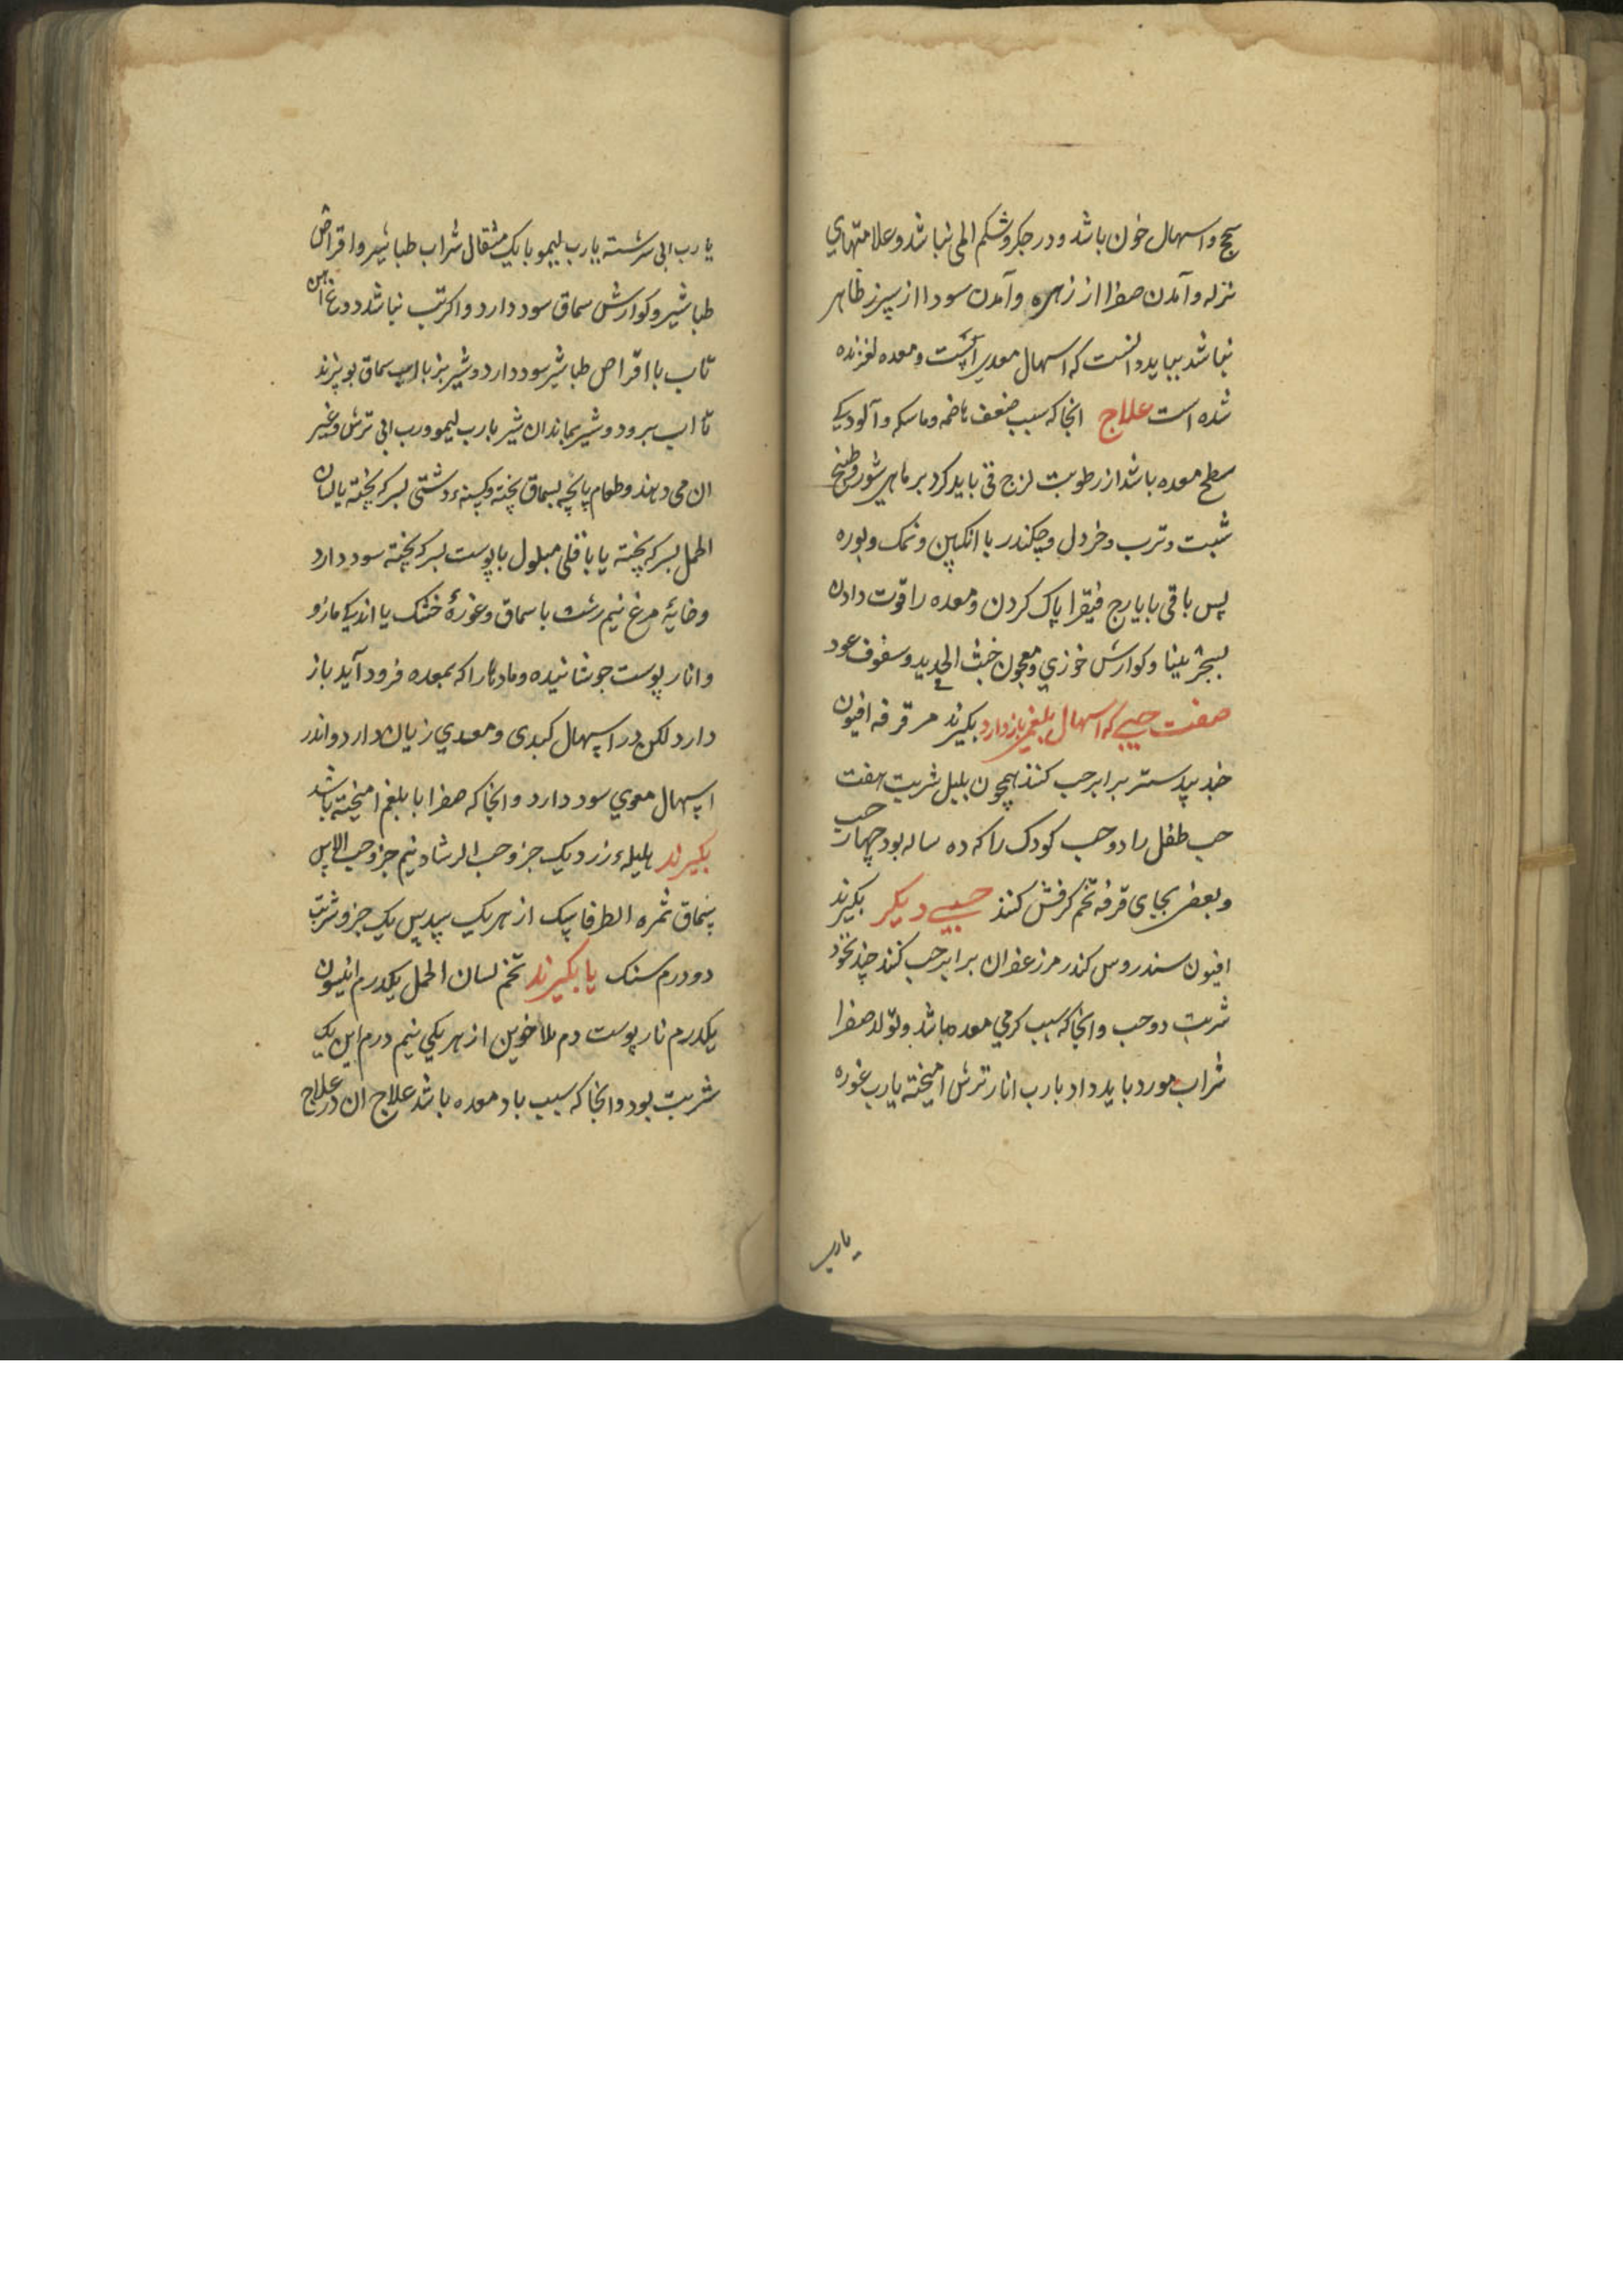 سحج و اسهال خون باشد و در جکر و شکم المی نباشد و علامتهای
نزله و آمدن صفرا از زهره و آمدن سودا از سپرز ظاهر
نباشد بباید دانست که اسهال معدی است و معده لغزنده
شده است علاج انجا که سبب ضعف هاضمه و ماسکه و آلودیکے
سطح معده باشد از رطوبت لزج قی باید کرد بر ماهی شور و طبیخ
شبت و ترب و خردل و چکندر با انکبین و نمک و بوره
پس باقی بایارج فیقرا پاک کردن و معده را قوت دادن
بسجزینا و کوارش خوزی و معجون خبث الحدید و سفوف عود
صفت حبے که اسهال بلغمی باز دارد بکیرند مر قرفه افیون
جند بیدستر برابر حب کنند همچون پلپل شربت هفت
حب طفل را دو حب کودک را که ده ساله بود چهار حب
و بعضی بجای قرفه تخم کرفش کنند حبے دیکر بکیرند
افیون سندروس کندر مر زعفران برابر حب کنند چند نخود
شربت دو حب و انجا که سبب کرمی معده باشد و تولد صفرا
شراب مورد باید داد با رب انار ترش امیخته یا رب غوره
یا رب
یا رب ابی سرشته یا رب لیمو با یک مثقال شراب طباشیر و اقراص
طباشیر و کوارش سماق سود دارد و اکر تب نباشد دوغ اهن
تاب با اقراص طباشیر سود دارد و شیر بز با اب سماق بوپزند
تا اب برود و شیر بماند ان شیر با رب لیمو و رب ابی ترش و غیر
ان می دهند و طعام پاچه بسماق پخته و کبسنه دشتی بسرکه پخته یا لسان
الحمل بسرکه پخته یا باقلی مبلول با پوست بسرکه پخته سود دارد
و خایهٔ مرغ نیم رشت با سماق و غورهٔ خشک یا اندکے مازو
و انار پوست جوشانیده و مادها را که بمعده فرود آید باز
دارد لکن در اسهال کبدی و معدی زیان دارد و اندر
اسهال معوی سود دارد و انجا که صفرا با بلغم امیخته باشد
بکیرند هلیلهٔ زرد یک جزو حب الرشاد نیم جزو حب الاس
سماق ثمره الطرفا سک از هریک سدس یک جزو شربت
دو درم سنک یا بکیرند تخم لسان الحمل یکدرم انیسون
یکدرم نار پوست دم الاخوین از هر یکی نیم درم این یک
شربت بود و انجا که سبب باد معده باشد علاج ان در علاج